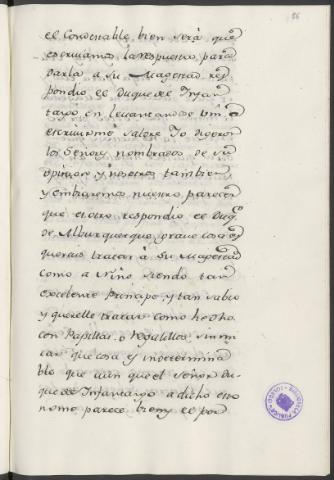 86
el Condestable, bien será que
escriuamos la respuesta para
darla a su Magestad res
pondio el Duque del Infan
tazgo en leuantandose Vm
escriuiremos saldre Yo dijeron
los Señores nombrados de su
opinion, y nosotros tambien
y embiaremos nuestro parecer
que es otro respondio el Duqe
de Alburquerque, graue cosa es
quereis tratar à Su Magestad
como a Niño siendo tan
excelente Principe, y tan sabio
y quererle tratar como hasta
con Papillas, o regalillos, sinifi
car que cosa, y indetermina
ble que aun que el señor Du
que del Infantazgo a dicho esto
no me parece bien, y el por